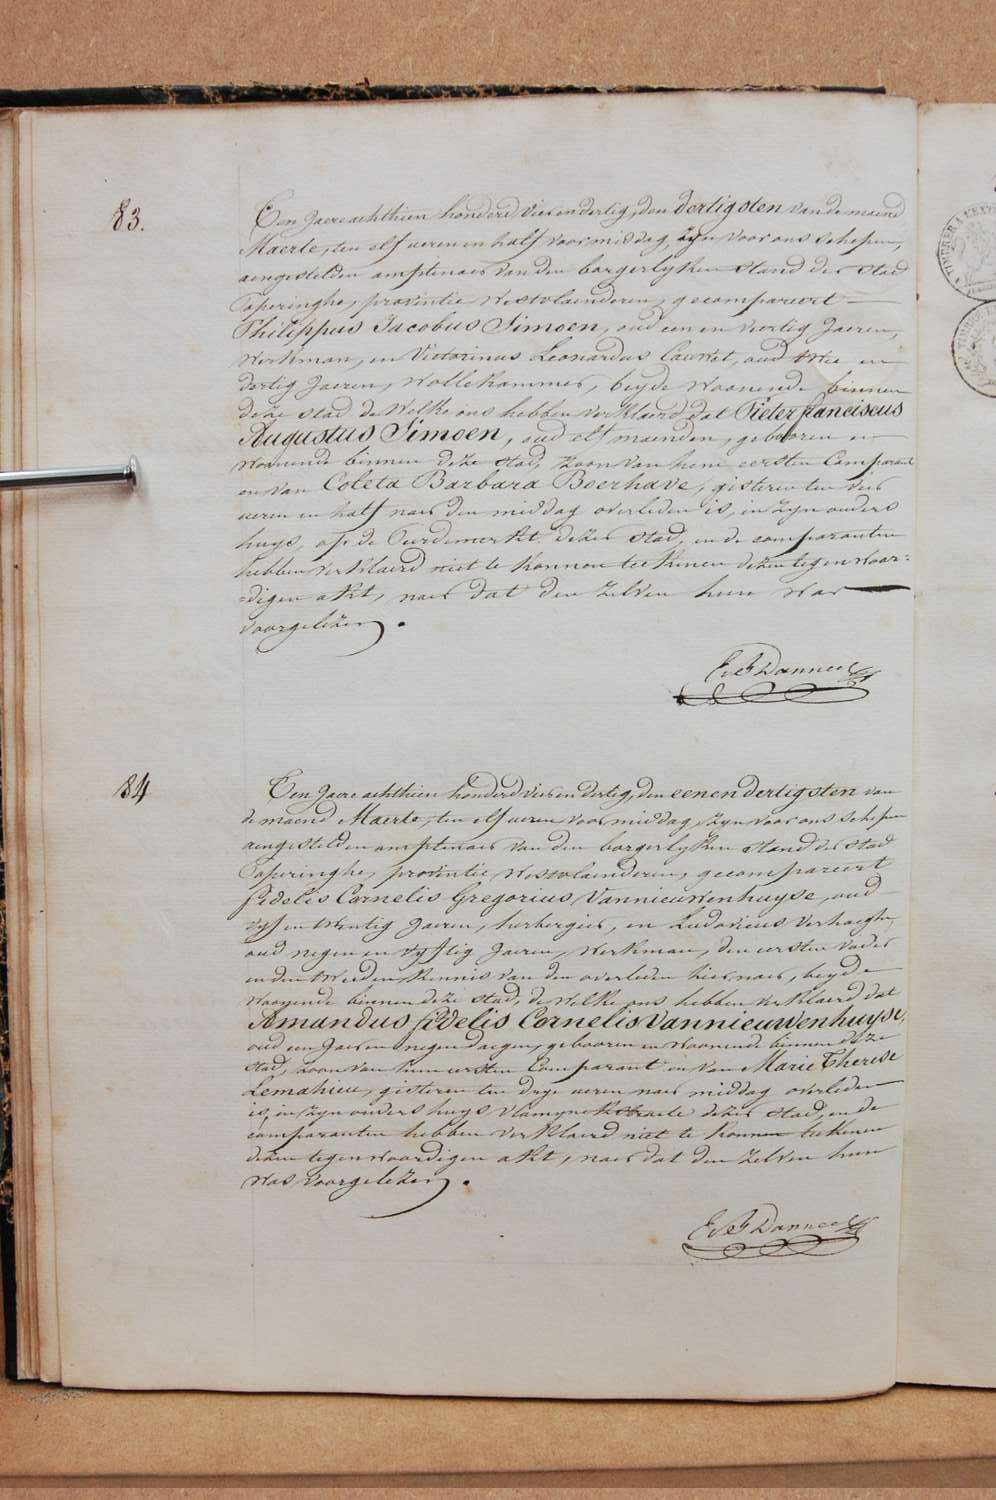 83.
Ten Jaere achthien honderd vier en dertig, den dertigsten van de maend
Maerte, ten elf ueren en half voormiddag, zyn voor ons schepen,
aengestelden amptenaer van den borgerlyken stand der stad
Poperinghe, provintie Westvlaenderen, gecompareert
Philippus Jacobus Simoen, oud een en viertig Jaeren,
Werkman, en Victorinus Leonardus Cauwet, oud twee en
dertig Jaeren, Wollekammer, beyde Woonende binnen
deze stad de Welke ons hebben verklaerd dat Pieter franciscus
Augustus Simoen, oud elf maenden, gebooren en
woonende binnen deze stad, zoon van hem eersten Comparant
en van Coleta Barbara Boerhave, gisteren ten vier
ueren en half naer den middag overleden is, in zyn ouders
huys, op de Peerdemerkt dezer stad, en de comparanten
hebben verklaerd niet te konnen teekenen dezen tegenwoor=
=digen akt, naer dat den zelven hun was
voorgelezen.
E de F Danneel
84
Ten Jaere achthien honderd vier en dertig, den eenen dertigsten van
de maend Maerte, ten elf ueren voormiddag, zyn voor ons schepen
aengestelden amptenaer van den borgerlyken stand der stad
Poperinghe, provintie Westvlaenderen, gecompareert
fidelis Cornelis Gregorius Vannieuwenhuyse, oud
vyf en twintig Jaeren, herbergier, en Ludovicus Verhaeghe,
oud negen en vyftig Jaeren, Werkman, den eersten vader
en den tweeden kennis van den overleden hier naer, beyde
Woonende binnen deze stad, de Welke ons hebben verklaerd dat
Amandus fidelis Cornelis Vannieuwenhuyse,
oud een Jaer en negen daegen, gebooren en woonende binnen deze
stad, zoon van hem eersten Comparant en van Marie Therese
Lemahieu, gisteren ten drye ueren naer middag overleden
is, in zyn ouders huys Vlamynckstraete dezer stad, en de
comparanten hebben verklaerd niet te konnen teekenen
dezen tegenwoordigen akt, naer dat den zelven hun
was voorgelezen.
E de F Danneel